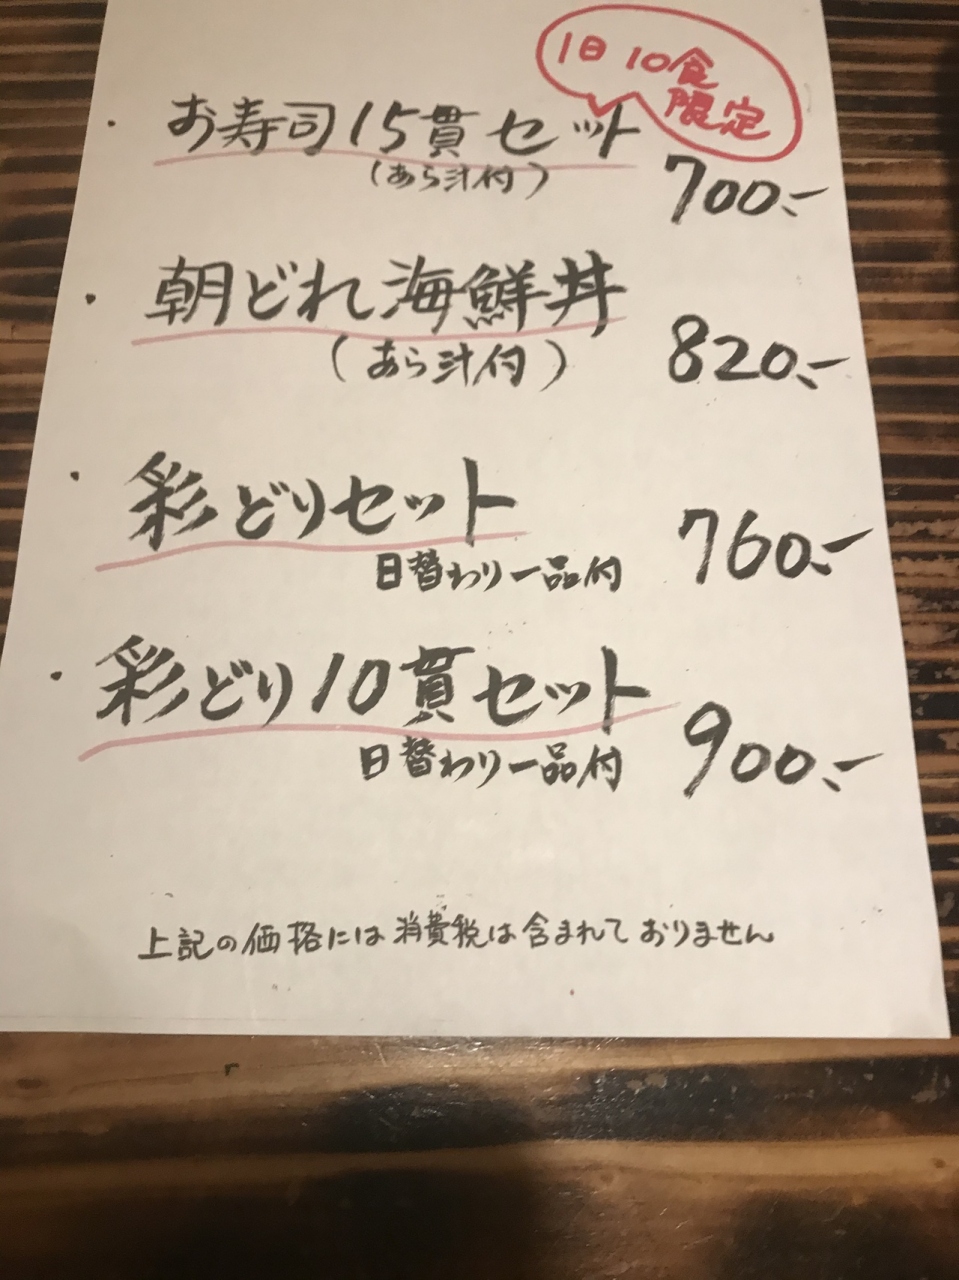 1日10食
限定
・お寿司15貫セット
(あら汁付)
700.-
・朝どれ海鮮丼
(あら汁付)
820.-
・彩どりセット
日替わり一品付
760.-
・彩どり10貫セット
日替わり一品付
900.-
上記の価格には消費税は含まれておりません